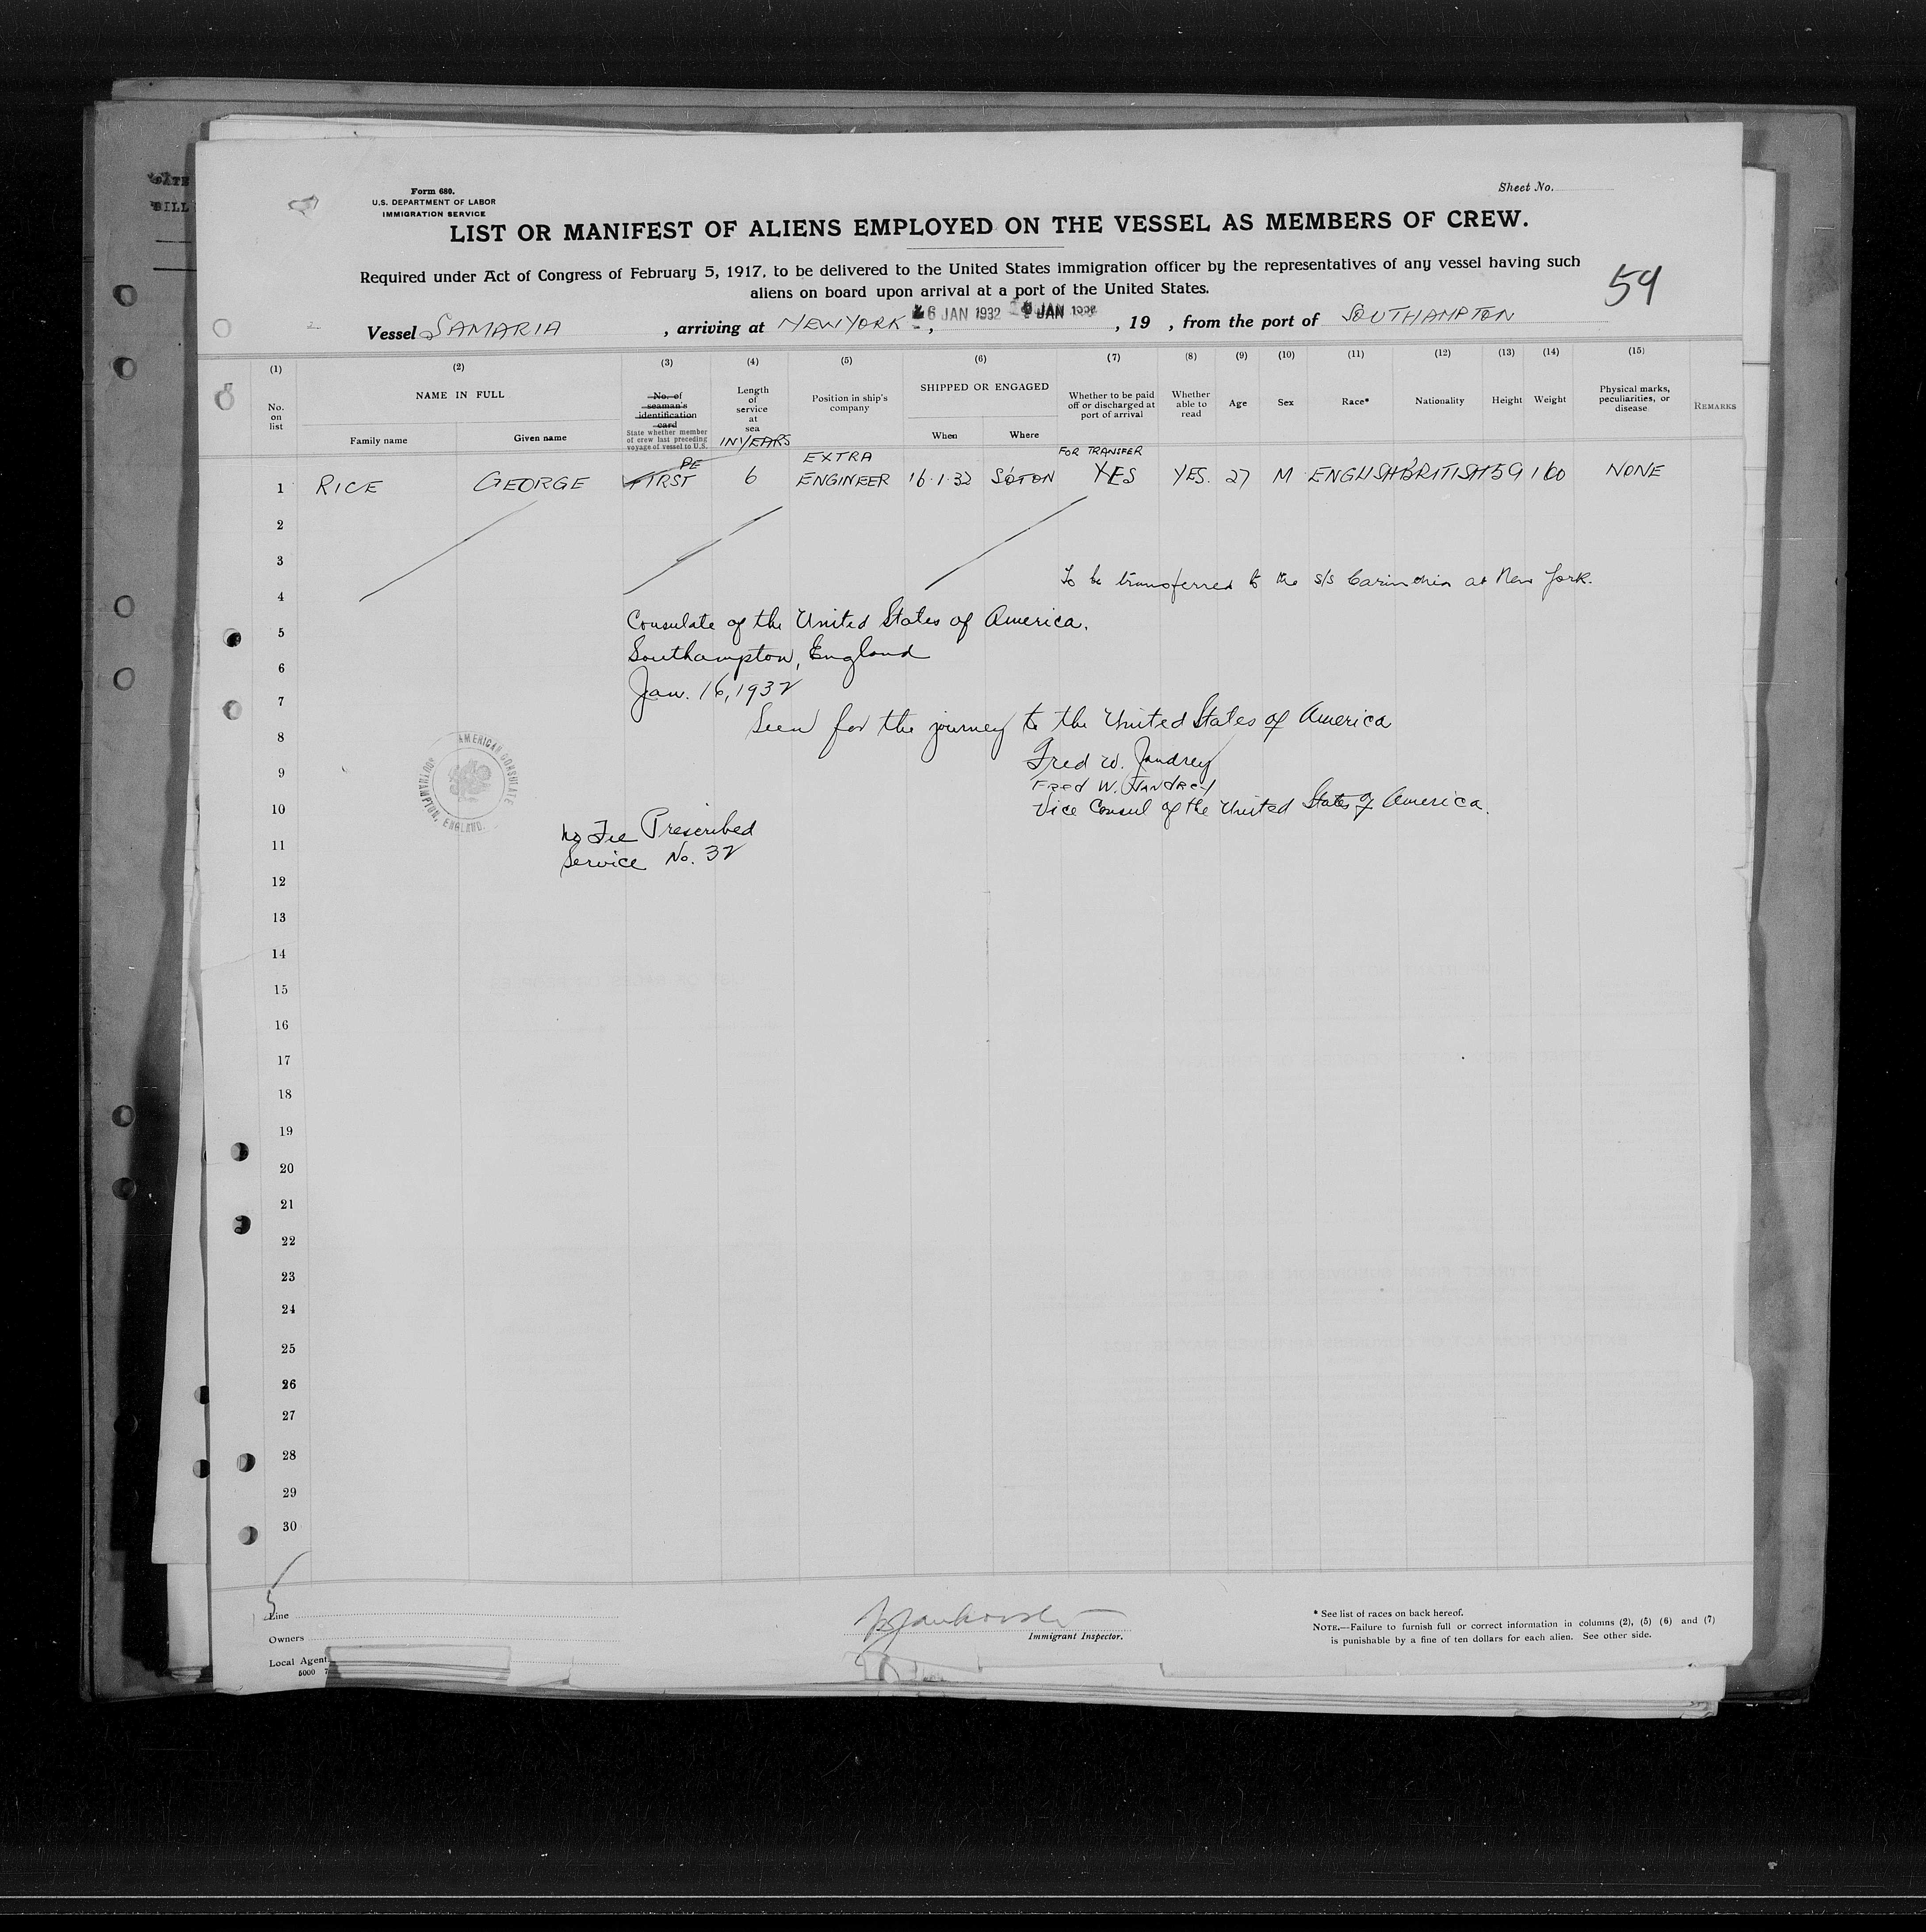 Form 680.
U.S. DEPARTMENT OF LABOR
IMMIGRATION SERVICE
Sheet No.
LIST OR MANIFEST OF ALIENS EMPLOYED ON THE VESSEL AS MEMBERS OF CREW.
Required under Act of Congress of February 5, 1917, to be delivered to the United States immigration officer by the representatives of any vessel having such
aliens on board upon arrival at a port of the United States.
54
Vessel SAMARIA, arriving at NEW YORK, 6 JAN 1932 JAN, 19 , from the port of SOUTHAMPTON
(1) (2) (3) (4) (5) (6) (7) (8) (9) (10) (11) (12) (13) (14) (15)
No. on list
NAME IN FULL
Family name
Given name
No. of seaman's identification card
State whether member of crew last preceding voyage of vessel to U.S.
Length of service at sea
IN YEARS
Position in ship's company
SHIPPED OR ENGAGED
When
Where
Whether to be paid off or discharged at port of arrival
Whether able to read
Age
Sex
Race*
Nationality
Height
Weight
Physical marks, peculiarities, or disease
REMARKS
EXTRA FOR TRANSFER
1 RICE GEORGE FIRST 6 ENGINEER 16.1.32 S'OTON YES YES. 27 M ENGLISH BRITISH 59 160 NONE
2
3
To be transferred to the s/s Carinthia at New York.
4
Consulate of the United States of America.
5
Southampton, England
6
Jan. 16, 1932
7
Seen for the journey to the United States of America
8
Fred W. Jandrey
9
FRED W. JANDREY
Vice Consul of the United States of America.
10
AMERICAN CONSULATE
SOUTHAMPTON, ENGLAND.
No Fee Prescribed
11
Service No. 32
12
13
14
15
16
17
18
19
20
21
22
23
24
25
26
27
28
29
30
Line
Owners
Local Agent
5000
Immigrant Inspector.
* See list of races on back hereof.
NOTE.—Failure to furnish full or correct information in columns (2), (5) (6) and (7)
is punishable by a fine of ten dollars for each alien. See other side.